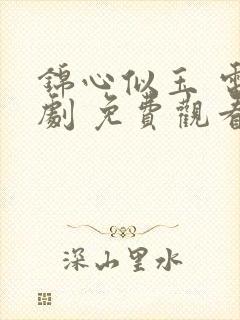 錦心似玉 電
劇 免費觀看
深山里水